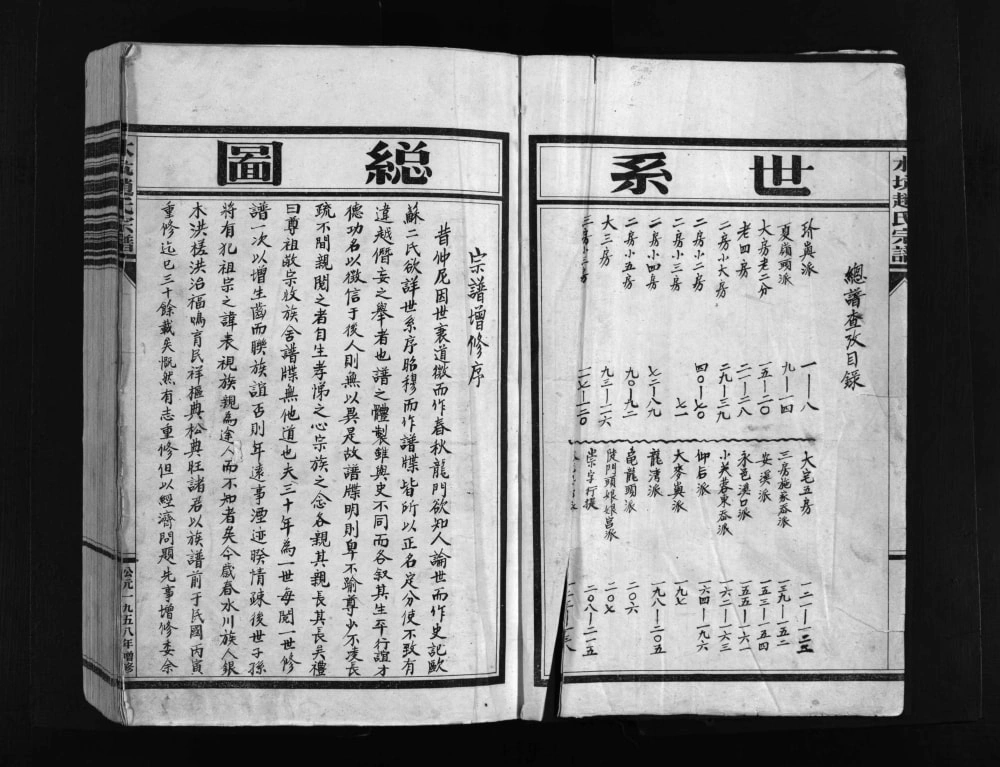 世系
水坑趙氏宗譜
總譜查攷目錄
珎輿派 一—八
夏嶺頭派 九—一四
大房老二分 一五—二〇
老四房 二一—二八
二房小大房 二九—三九
二房小二房 四〇—七〇
二房小三房 七一
二房小四房 七二—八九
二房小五房 九〇—九二
大三房 九三—一一六
一七—一二〇
大宅五房 一二一—一三三
三房施家岙派 一三九—一五二
安溪派 一五三—一五四
永邑溪口派 一五五—一六一
小芙蓉東岙派 一六二—一六三
仰后派 一六四—一九六
大麥輿派 一九七
龍灣派 一九八—二〇五
龜龍頭派 二〇六
陡門頭娘娘宮派 二〇七
崇字行援 二〇八—二一五
總圖
宗譜增修序
昔仲尼因世衰道微而作春秋龍門欲知人論世而作史記歐
蘇二氏欲詳世系序昭穆而作譜牒皆所以正名定分使不致有
違越僭妄之舉者也譜之體製雖與史不同而各叙其生卒行誼才
德功名以徵信于後人則無以異是故譜牒明則卑不踰尊少不凌長
疏不間親閱之者自生孝悌之心宗族之念各親其親長其長矣禮
曰尊祖敬宗收族舍譜牒無他道也夫三十年為一世每閱一世修
譜一次以增生齒而聯族誼否則年遠事湮迹睽情疎後世子孫
將有犯祖宗之諱表視族親為途人而不知者矣今歲春水川族人銀
木洪槎洪治福鳴育民祥楅典松典旺諸君以族譜前于民國丙寅
重修迄已三十餘載矣慨然有志重修但以經濟問題先事增修委余
水坑趙氏宗譜
公元一九五八年增修